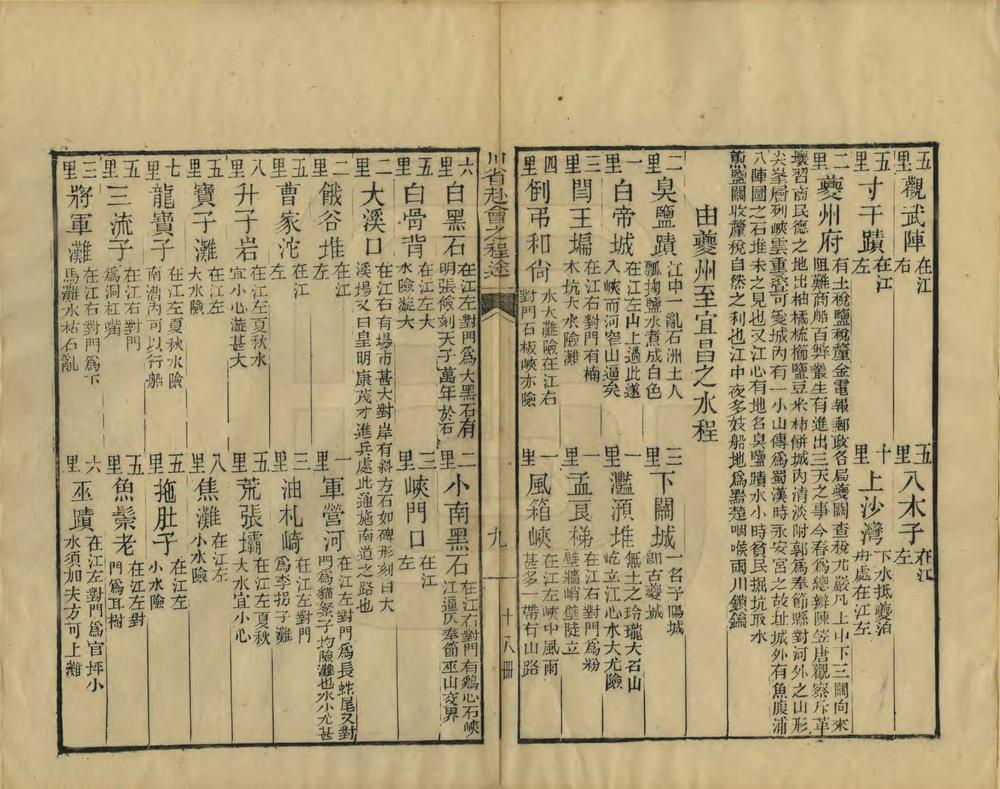 五里 觀武陣 在江右
五里 八木子 在江左
五里 寸干蹟 在江左
十里 上沙灣 下水抵夔泊舟處在江左
二里 夔州府 有土稅鹽稅釐金電報郵政各局夔關查稅尤嚴凡上中下三關向來
阻難商船百弊叢生有進出三天之事今春為總辦陳笠唐觀察斥革
壞習商民德之地出柚橘梳櫛鹽豆米柿餅城內清淡附郭為奉節縣對河外之山形
尖峯層列峽雲重叠可愛城內有一小山傳為蜀漢時永安宮之故址城外有魚腹浦
八陣圖之石堆未之見也又江心有地名臭鹽蹟水小時貧民掘坑取水
煎鹽關收釐稅自然之利也江中夜多妓船地為黔楚咽喉兩川鎖鑰
由夔州至宜昌之水程
二里 臭鹽蹟 江中一亂石洲土人瓢掬鹽水煮成白色
三里 下關城 一名子陽城謂古夔城
一里 白帝城 在江左山上過此遂入峽而河窄山逼矣
一里 灩澦堆 無土之玲瓏大石山屹立江心水大尤險
三里 閆王碥 在江右對門有楠木坑大水險灘
一里 孟良梯 在江右對門為粉壁牆峭壁陡立
四里 倒弔和尙 水大灘險在江右對門石板峽亦險
一里 風箱峽 在江左峽中風雨甚多一帶有山路
川省赴會之程途
九
十八冊
六里 白黑石 在江左對門為大黑石有明張儉刻天子萬年於石
二里 小南黑石 在江右對門有鷄心石峽江逼仄奉節巫山交界
五里 白骨背 在江左大水險漩大
三里 峽門口 在江左
二里 大溪口 在江右有場市甚大對岸有斜方石如碑形刻曰大
溪場又曰皇明康茂才進兵處此通施南道之路也
二里 餓谷堆 在江左
一里 軍營河 在江左對門為長蛇尾又對門為貓祭子均險灘也水小尤甚
五里 曹家沱 在江左
三里 油札崎 在江左對門為李拐子灘
八里 升子岩 在江左夏秋水宜小心漩甚大
五里 荒張壩 在江左夏秋大水宜小心
五里 寶子灘 在江左大水險
八里 焦灘 在江左小水險
七里 龍寶子 在江左夏秋水險南漕內可以行船
五里 拖肚子 在江左小水險
五里 三流子 在江右對門為洞杠嘴
五里 魚鬃老 在江左對門為耳樹
三里 將軍灘 在江右對門為下馬灘水枯石亂
六里 巫蹟 在江左對門為官坪小水須加夫方可上灘